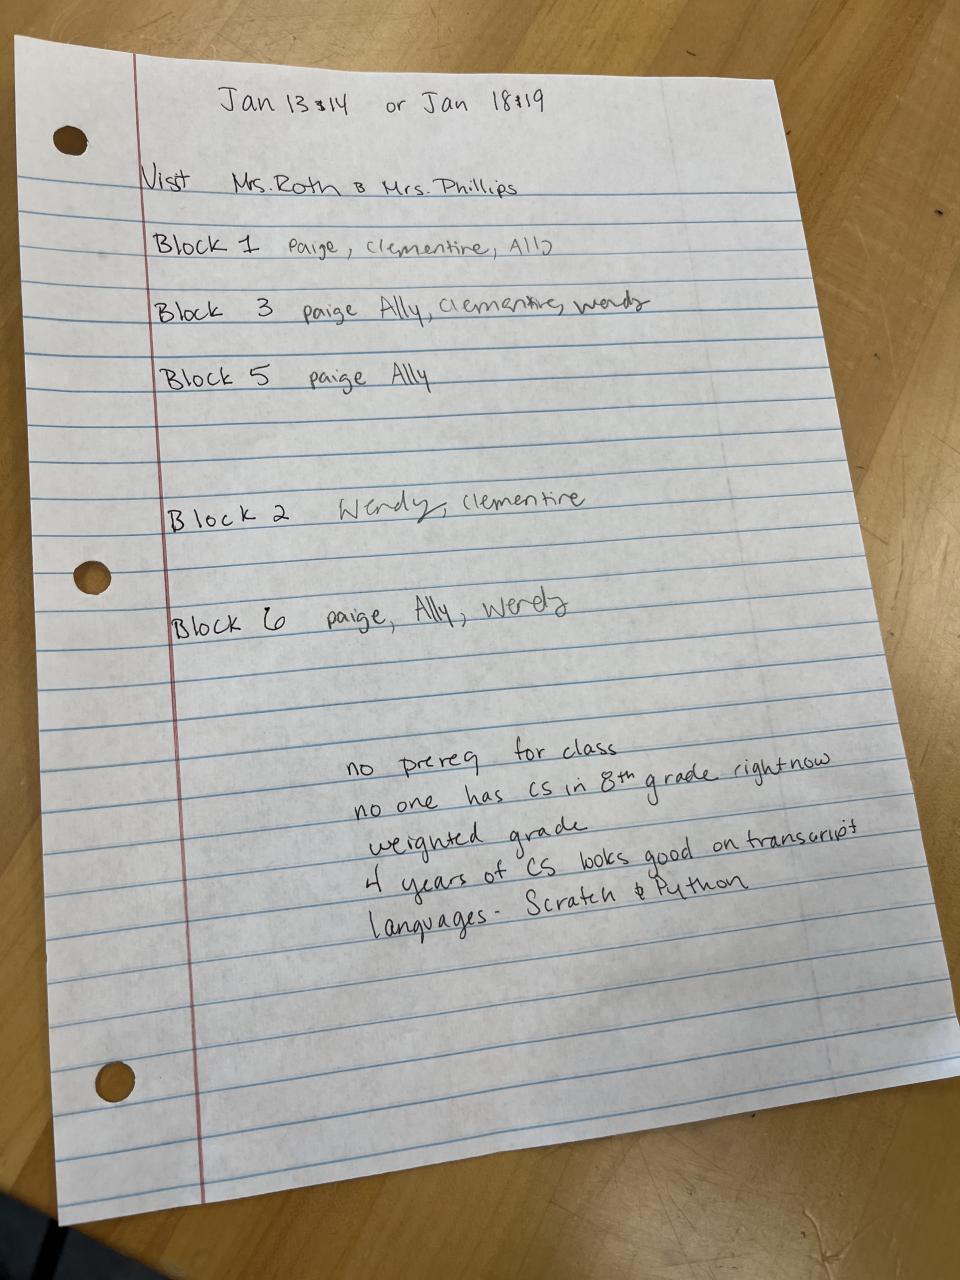 Jan 13 & 14 or Jan 18 & 19
Visit Mrs. Roth & Mrs. Phillips
Block 1 paige, clementine, Ally
Block 3 paige Ally, clementine, wendy
Block 5 paige Ally
Block 2 Wendy, clementine
Block 6 paige, Ally, wendy
no prereq for class
no one has CS in 8th grade right now
weighted grade
4 years of CS looks good on transcript
languages - Scratch & Python